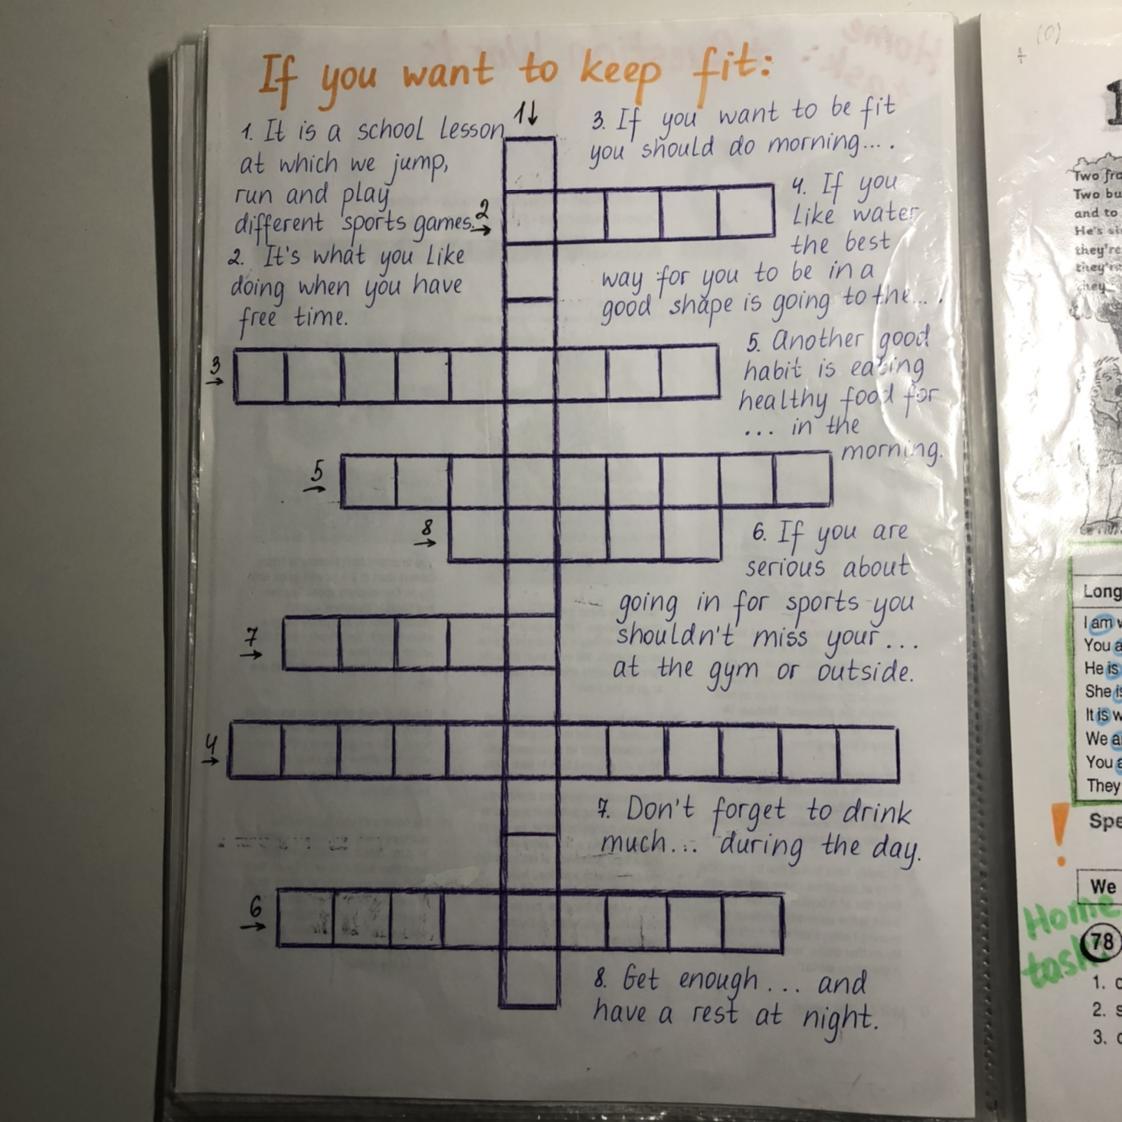 If you want to keep fit:
1↓
1. It is a school lesson
at which we jump,
run and play
different sports games.
2
→
2. It's what you like
doing when you have
free time.
3. If you want to be fit
you should do morning... .
4. If you
like water
the best
way for you to be in a
good shape is going to the... .
3
→
5. Another good
habit is eating
healthy food for
... in the
morning.
5
→
8
→
6. If you are
serious about
going in for sports you
shouldn't miss your ...
at the gym or outside.
7
→
4
→
7. Don't forget to drink
much... during the day.
6
→
8. Get enough ... and
have a rest at night.
(0)
1
Two fro
Two bu
and to
He's si
they're
they're
they
Long
I am w
You a
He is
She is
It is w
We a
You a
They
!
Spe
We
Home
task:
78
1. c
2. s
3. c